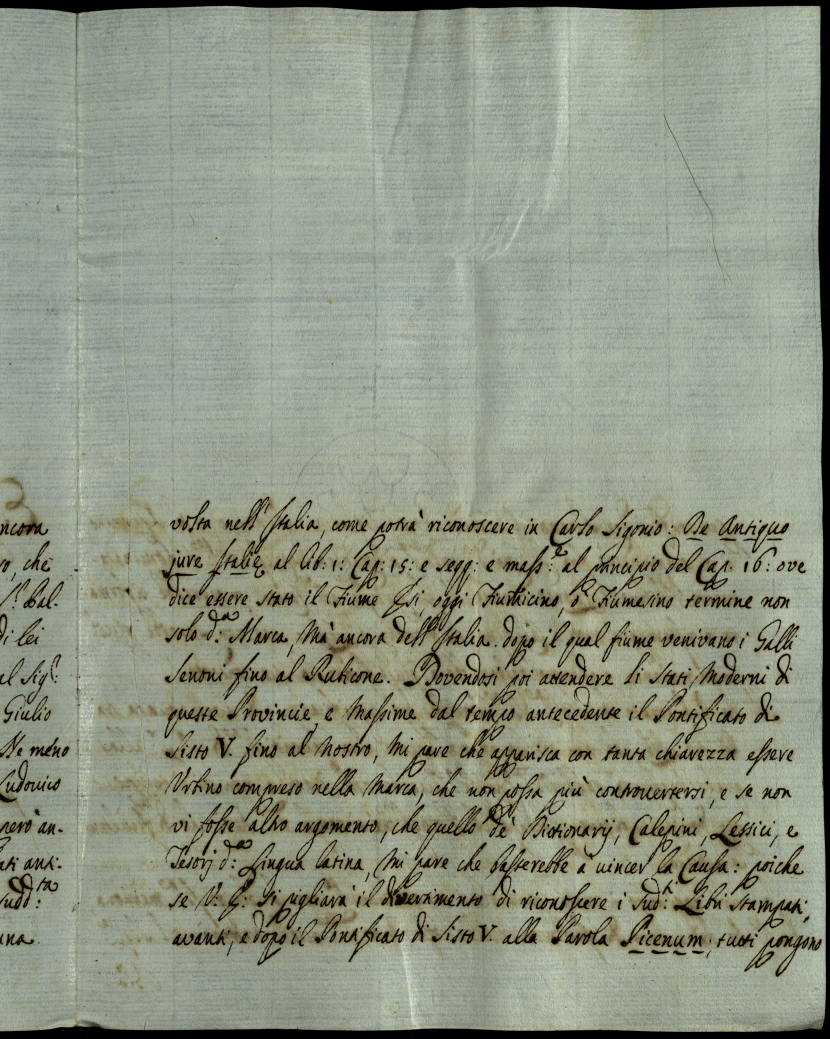 ncora
o, che
Sr. Bal-
di lei
al Sigr:
Giulio
Ne meno
Ludovico
però an-
ati anti-
sudd:ta
una
volta nell'Italia, come potrà riconoscere in Carlo Sigonio: De Antiquo
jure Italiȩ al lib: 1: Cap: 15: e segg: e mass:e al principio del Cap. 16: ove
dice essere stato il Fiume Esi oggi Fiumicino, ò Fiumesino termine non
solo d:a Marca, mà ancora dell'Italia. dopo il qual fiume venivano i Galli
Senoni fino al Rubicone. Dovendosi poi attendere li stati Moderni di
queste Provincie, e Massime dal tempo antecedente il Pontificato di
Sisto V. fino al nostro, mi pare che apparisca con tanta chiarezza essere
Urbino compreso nella Marca, che non possa più controvertersi, e se non
vi fosse altro argomento, che quello de' Dictionarij, Calepini, Lessici, e
Tesorj d:a Lingua latina, mi pare che basterebbe à vincer la Causa: poiche
se V: E: si pigliarà il divertimento di riconoscere i sud:i Libri stampati,
avanti, e dopo il Pontificato di Sisto V. alla Parola Picenum; tutti pongono